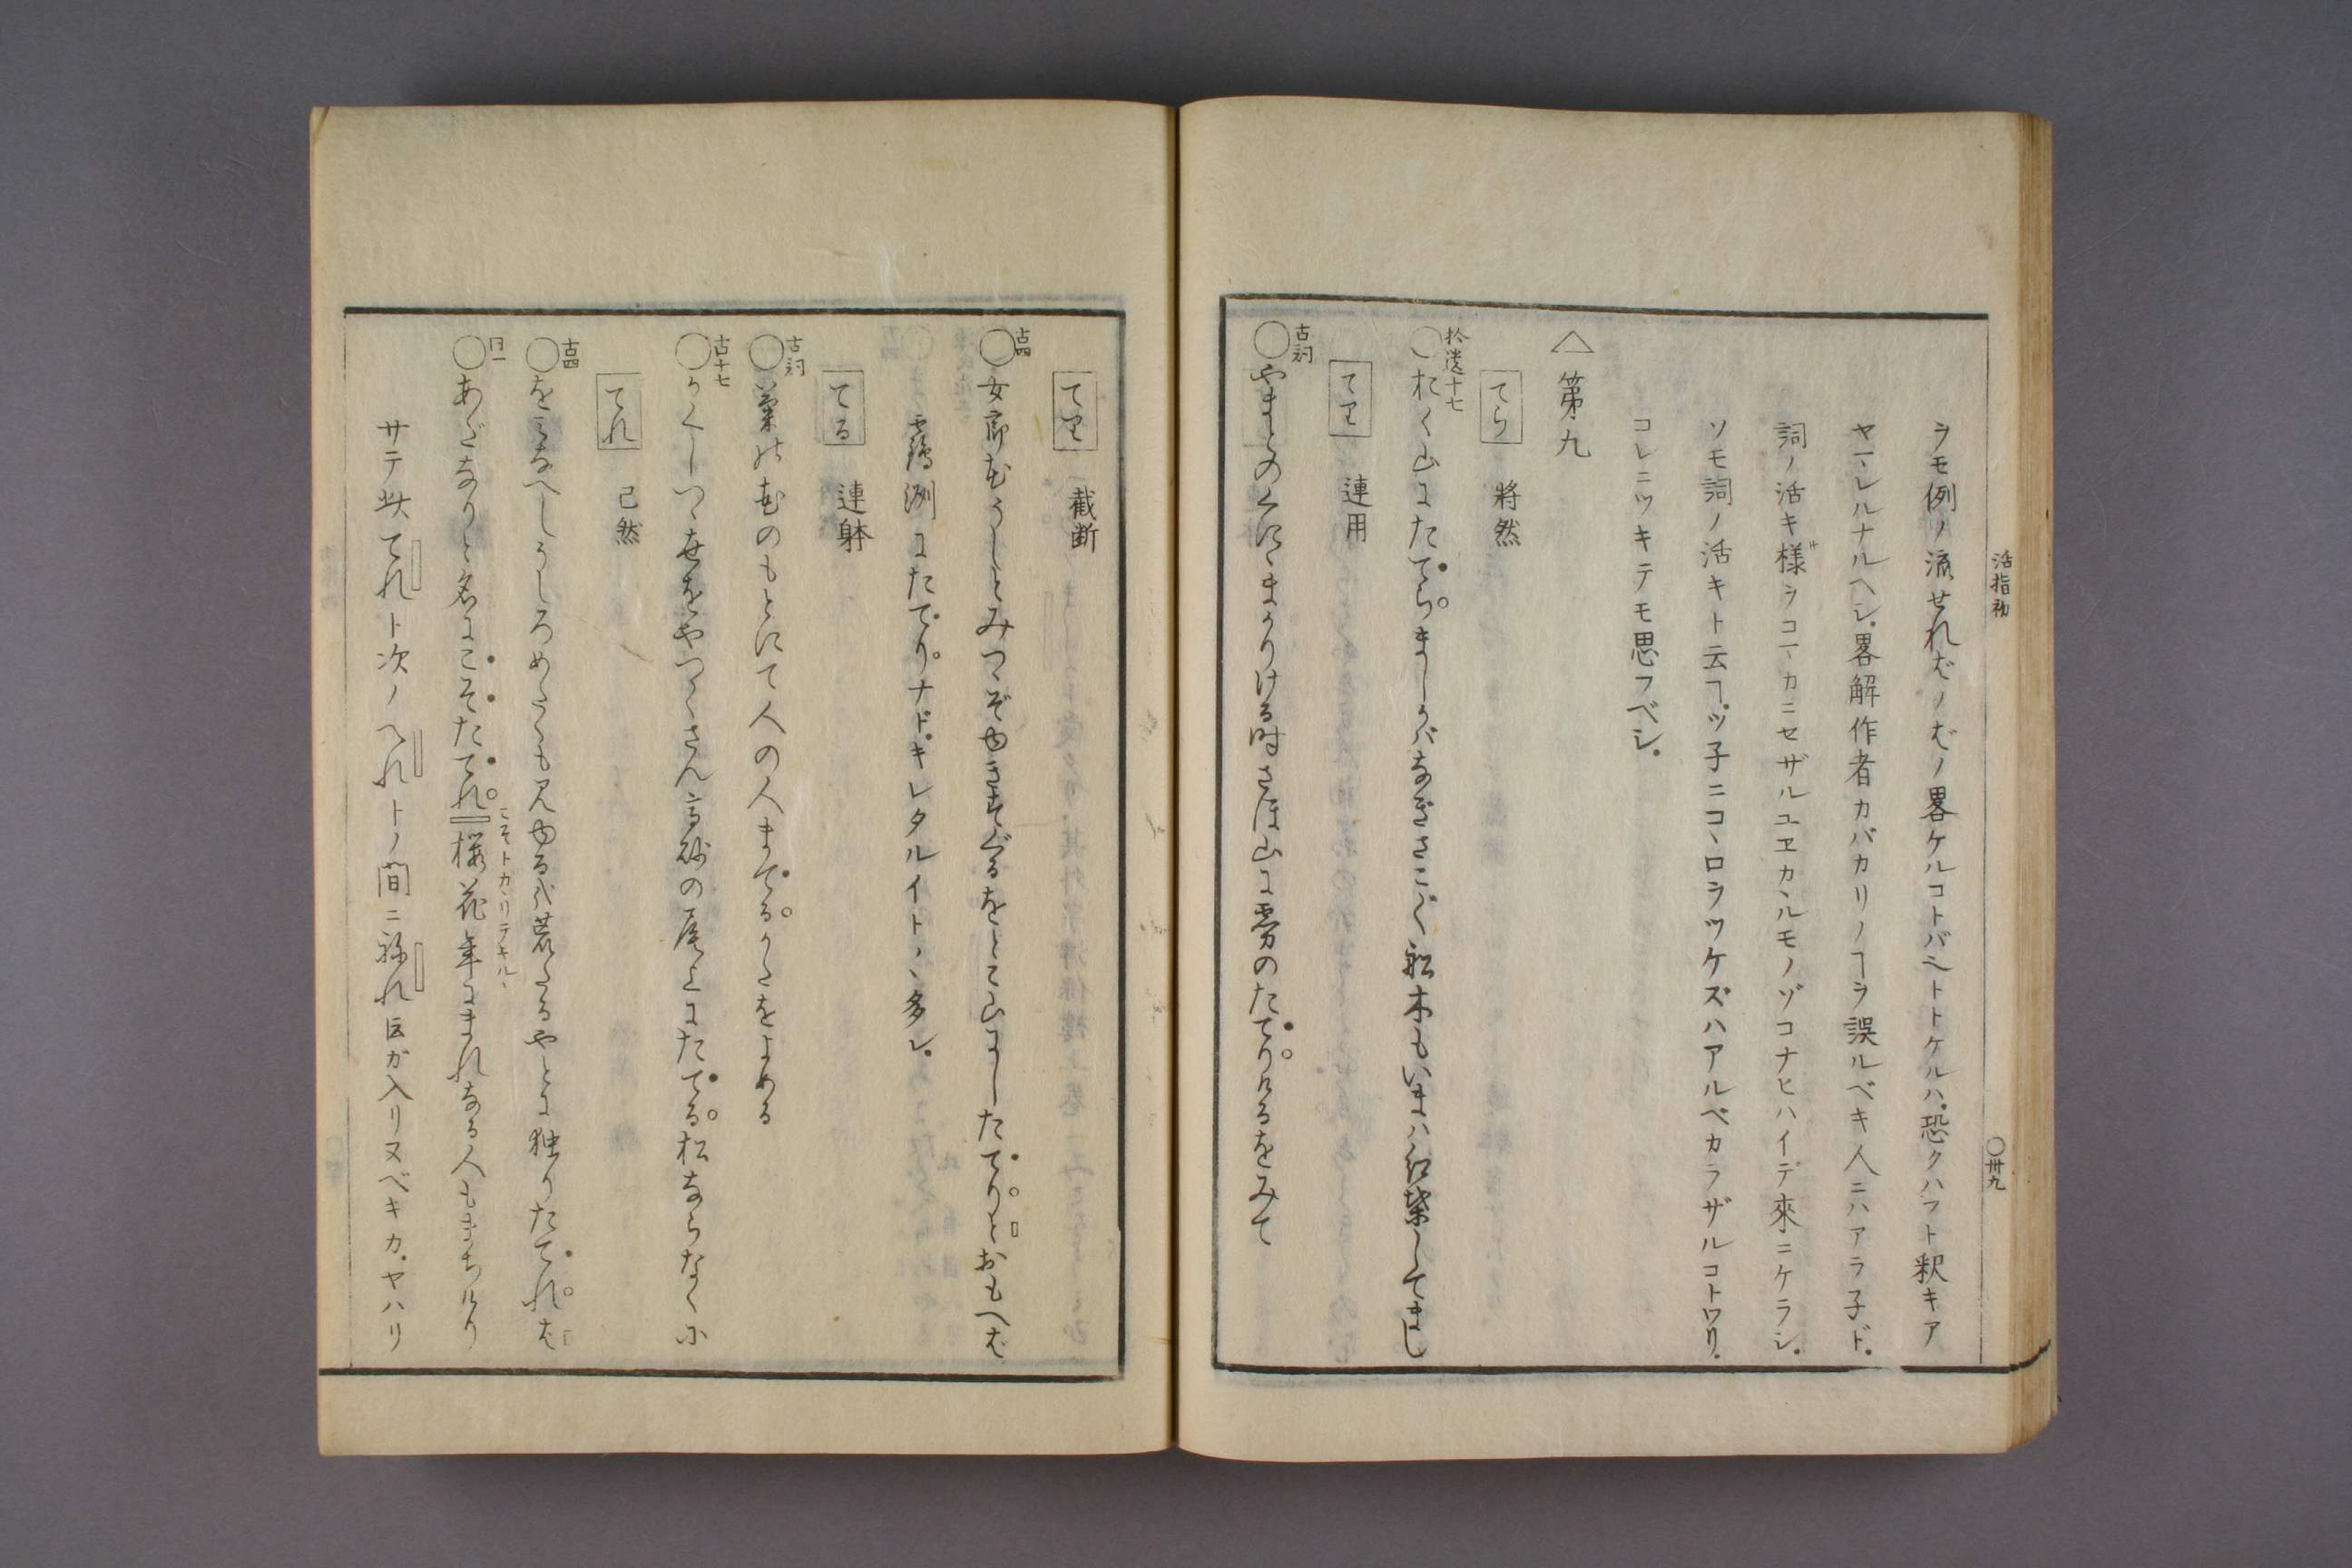 活指初
〇卅九
ラモ例ノ流せれどノどノ畧ケルコトバヘトトケルハ恐クハフト釈キア
ヤヽレルナルヘシ畧解作者カバカリノヿヲ誤ルベキ人ニハアラ子ド
詞ノ活キ様ヲコヽカニセザルユヱカヽルモノゾコナヒハイデ來ニケラシ
ソモ詞ノ活キト云ヿツ子ニコヽロヲツケズハアルベカラザルコトワリ
コレニツキテモ思フベシ
△第九
てら 將然
拾遺十七
〇おく山にたてらましかバなぎさこぐ船木もいまハ紅葉してまし
てり 連用
古詞
〇やまとのくにゝまかりける時さほ山に霧のたてりけるをみて
てり 截断
古四
〇女郎花うしとみつゝぞゆきすぐるをとこ山にしたてりとおもへば
霧洲にたてりナドキレタルイトヽ多シ
てる 連躰
古詞
〇菊の花のもとにて人の人まてるかたをよめる
古十七
〇かくしつゝ世をやつくさん高砂の尾上にたてる松ならなくに
てれ 已然
古四
〇をみなへしうしろめたくも見ゆる哉荒たるやとに独りたてれば
同一
〇あだなりと名にこそたてれ桜花年にまれなる人もまちけり
こそトカヽリテキルヽ
サテ此てれト次ノへれトノ間ニねれ𪜈カ入リヌベキカヤハリ